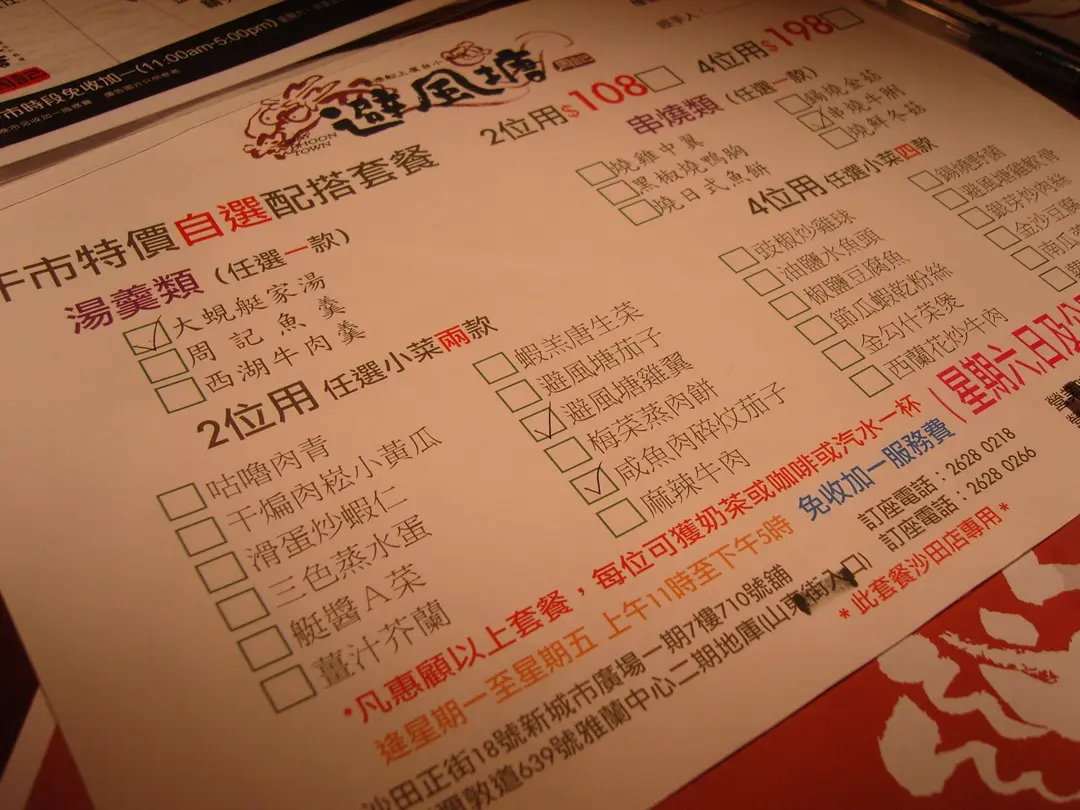 市時段免收加一(11:00am-5:00pm)
經手人：
避風塘
HOON
TOWN
2位用$108
4位用$198
午市特價自選配搭套餐
湯羹類 (任選一款)
大蜆艇家湯
周記魚羹
西湖牛肉羹
串燒類 (任選一款)
燒雞中翼
黑椒燒鴨胸
燒日式魚餅
錫燒金菇
串燒牛脷
燒鮮冬菇
2位用 任選小菜兩款
咕嚕肉青
干煸肉崧小黃瓜
滑蛋炒蝦仁
三色蒸水蛋
艇醬A菜
薑汁芥蘭
蝦羔唐生菜
避風塘茄子
避風塘雞翼
梅菜蒸肉餅
咸魚肉碎炆茄子
麻辣牛肉
4位用 任選小菜四款
豉椒炒雞球
油鹽水魚頭
椒鹽豆腐魚
節瓜蝦乾粉絲
金勾什菜煲
西蘭花炒牛肉
錫燒野菌
避風塘雞軟骨
銀芽炒肉絲
金沙豆腐
南瓜
*凡惠顧以上套餐，每位可獲奶茶或咖啡或汽水一杯
(星期六,日及公
逢星期一至星期五 上午11時至下午5時 免收加一服務費
沙田正街18號新城市廣場一期7樓710號舖 訂座電話：2628 0218
彌敦道639號雅蘭中心二期地庫(山東街入口) 訂座電話：2628 0266
*此套餐沙田店專用*